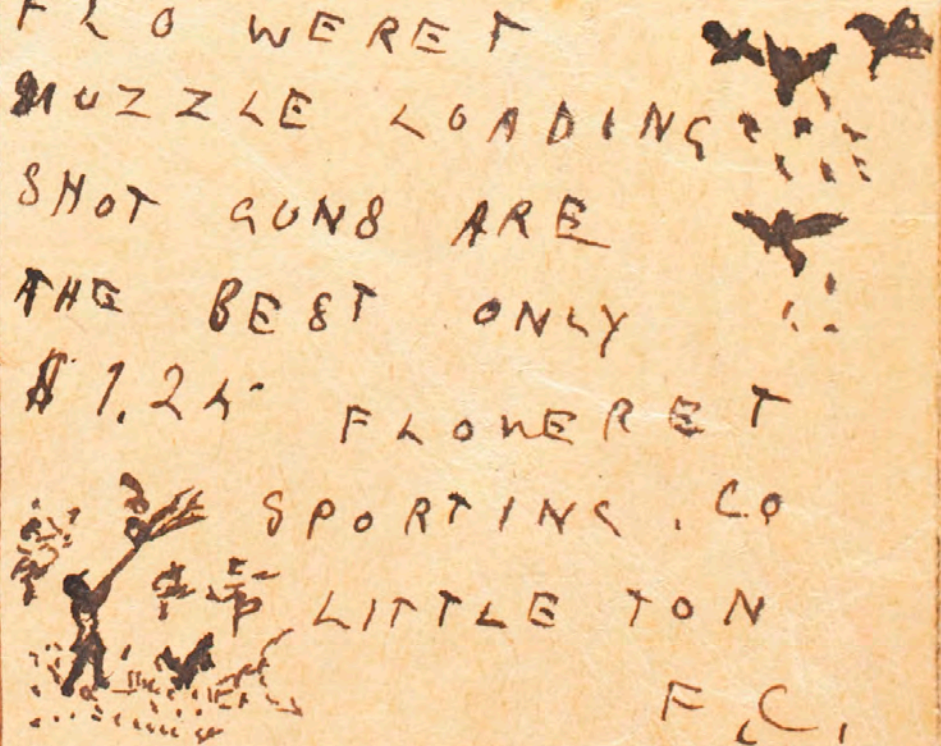 FLO WERET
MUZZLE LOADING
SHOT GUNS ARE
THE BEST ONLY
$1.25 FLOWERET
SPORTING . CO
LITTLE TON
F.C.